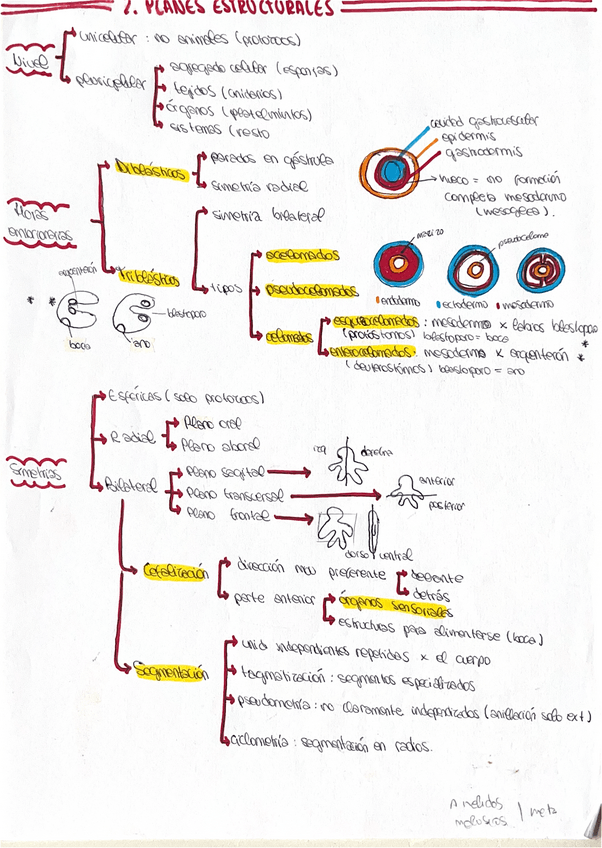 2. PLANES ESTRUCTURALES
Nivel
unicelular : no animales (protozoos)
pluricelular
agregado celular (esponjas)
tejidos (cnidarios)
órganos (platelmintos)
sistemas (resto
Hojas embrionarias
Diblásticos
parados en gástrula
simetría radial
cavidad gastrovascular
epidermis
gastrodermis
hueco = no formación
completa mesodermo
(mesoglea).
Triblásticos
simetría bilateral
tipos
acelomados
pseudocelomados
celomados
macizo
pseudoceloma
endodermo
ectodermo
mesodermo
esquizocelomados : mesodermo x labios blastoporo
(protóstomos) blastoporo = boca *
enterocelomados : mesodermo x arquenterón *
(deuteróstomos) blastoporo = ano
* *
arquenterón
blastoporo
boca
ano
Simetrías
Esféricas (solo protozoos)
Radial
Plano oral
Plano aboral
Bilateral
Plano sagital
izq
derecha
Plano transversal
anterior
posterior
Plano frontal
dorso
ventral
Cefalización
dirección mov preferente
delante
detrás
parte anterior
órganos sensoriales
estructuras para alimentarse (boca)
Segmentación
unid independientes repetidas x el cuerpo
tagmatización : segmentos especializados
pseudometría : no claramente independizados (anillación solo ext)
ciclometría : segmentación en radios.
Anélidos
moluscos
| meta